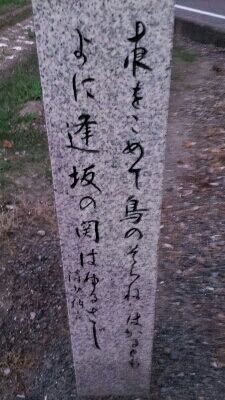 夜をこめて鳥のそらねははかるとも
よに逢坂の関はゆるさじ
清少納言